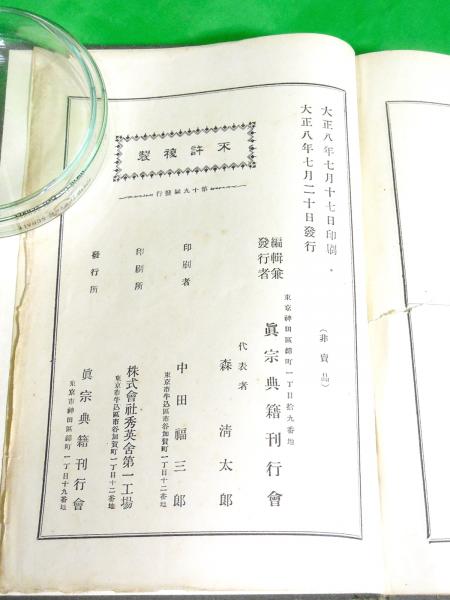 大正八年七月十七日印刷
大正八年七月二十日發行
(非賣品)
不許複製
第十九回發行
編輯兼
發行者
東京神田區錦町一丁目拾九番地
眞宗典籍刊行會
代表者
森淸太郎
印刷者
東京市牛込區市谷加賀町一丁目十二番地
中田福三郎
印刷所
東京市牛込區市谷加賀町一丁目十二番地
株式會社秀英舍第一工場
發行所
東京市神田區錦町一丁目十九番地
眞宗典籍刊行會